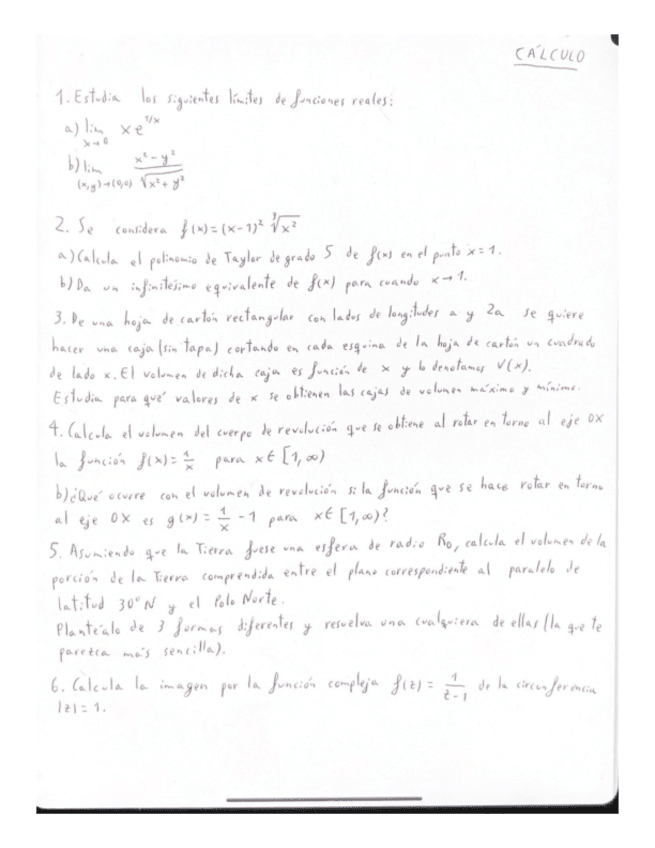 CÁLCULO
1. Estudia los siguientes límites de funciones reales:
a) lim x→0 x e^{1/x}
b) lim (x,y)→(0,0) \frac{x² - y²}{\sqrt{x² + y²}}
2. Se considera f(x) = (x-1)² \sqrt[3]{x²}
a) Calcula el polinomio de Taylor de grado 5 de f(x) en el punto x=1.
b) Da un infinitésimo equivalente de f(x) para cuando x→1.
3. De una hoja de cartón rectangular con lados de longitudes a y 2a se quiere
hacer una caja (sin tapa) cortando en cada esquina de la hoja de cartón un cuadrado
de lado x. El volumen de dicha caja es función de x y lo denotamos V(x).
Estudia para qué valores de x se obtienen las cajas de volumen máximo y mínimo.
4. Calcula el volumen del cuerpo de revolución que se obtiene al rotar en torno al eje OX
la función f(x) = \frac{1}{x} para x ∈ [1, ∞)
b) ¿Qué ocurre con el volumen de revolución si la función que se hace rotar en torno
al eje OX es g(x) = \frac{1}{x} - 1 para x ∈ [1, ∞)?
5. Asumiendo que la Tierra fuese una esfera de radio R₀, calcula el volumen de la
porción de la Tierra comprendida entre el plano correspondiente al paralelo de
latitud 30° N y el Polo Norte.
Plantéalo de 3 formas diferentes y resuelva una cualquiera de ellas (la que te
parezca más sencilla).
6. Calcula la imagen por la función compleja f(z) = \frac{1}{z-1} de la circunferencia
|z| = 1.